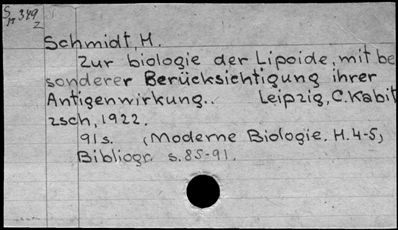 S 349
Schmidt, H.
Zur biologie der Lipoide, mit be
sonderer Berücksichtigung ihrer
Antigenwirkung.. Leipzig, C. Kabit
zsch, 1922.
91 s. (Moderne Biologie. H. 4-5)
Bibliogr. s. 85-91.